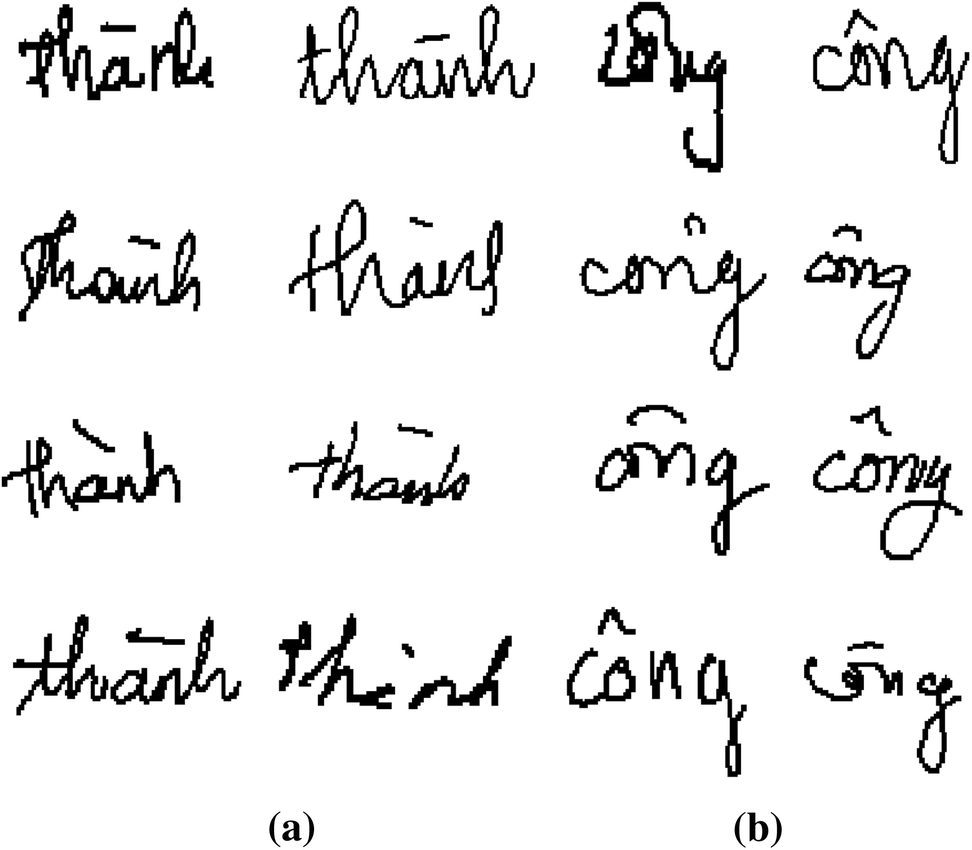 thành thành công công
thành thành công công
thành thành công công
thành thành công công
(a) (b)